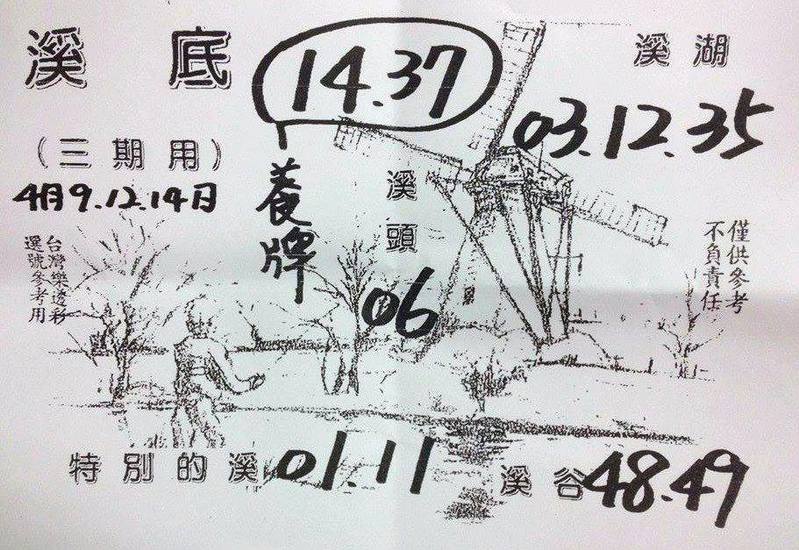 溪底
14.37
溪湖
03.12.35
(三期用)
4月9.12.14日
養牌
溪頭
06
僅供參考
不負責任
台灣樂透彩
選號參考用
特別的溪 01.11
溪谷 48.49